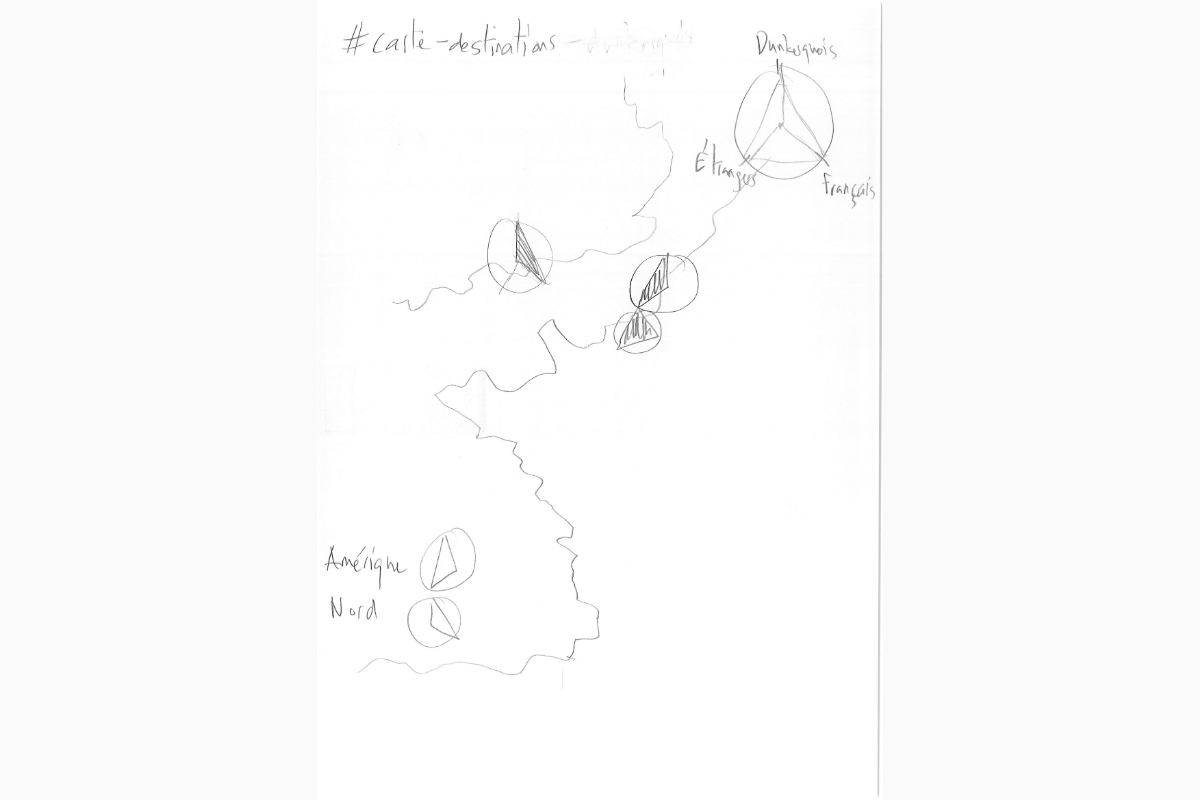 #carte-destinations
Dunkerquois
Étrangers
Français
Amérique
Nord